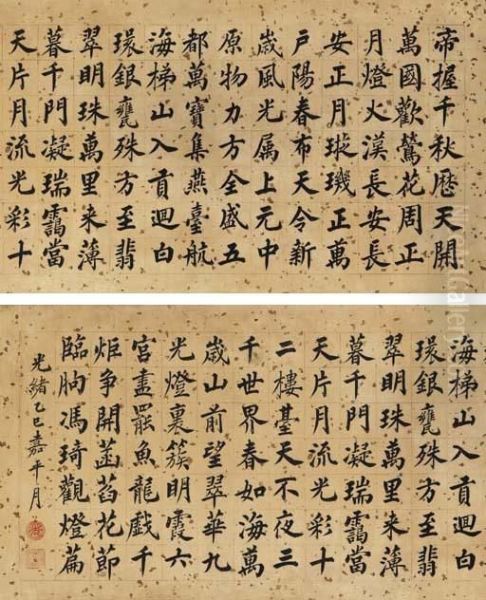 帝握千秋厯天開
萬國歡鶯花周正
月燈火漢長安長
安正月璇璣正萬
戶陽春布天令新
歲風光属上元中
原物力方全盛五
都萬寶集燕臺航
海梯山入貢迴白
環銀甕殊方至翡
翠明珠萬里来薄
暮千門凝瑞靄當
天片月流光彩十
海梯山入貢迴白
環銀甕殊方至翡
翠明珠萬里来薄
暮千門凝瑞靄當
天片月流光彩十
二樓臺天不夜三
千世界春如海萬
歲山前望翠華九
光燈裏簇明霞六
宮盡罷魚龍戲千
炬争開菡萏花節
臨朐馮琦觀燈篇
光緒乙巳嘉平月